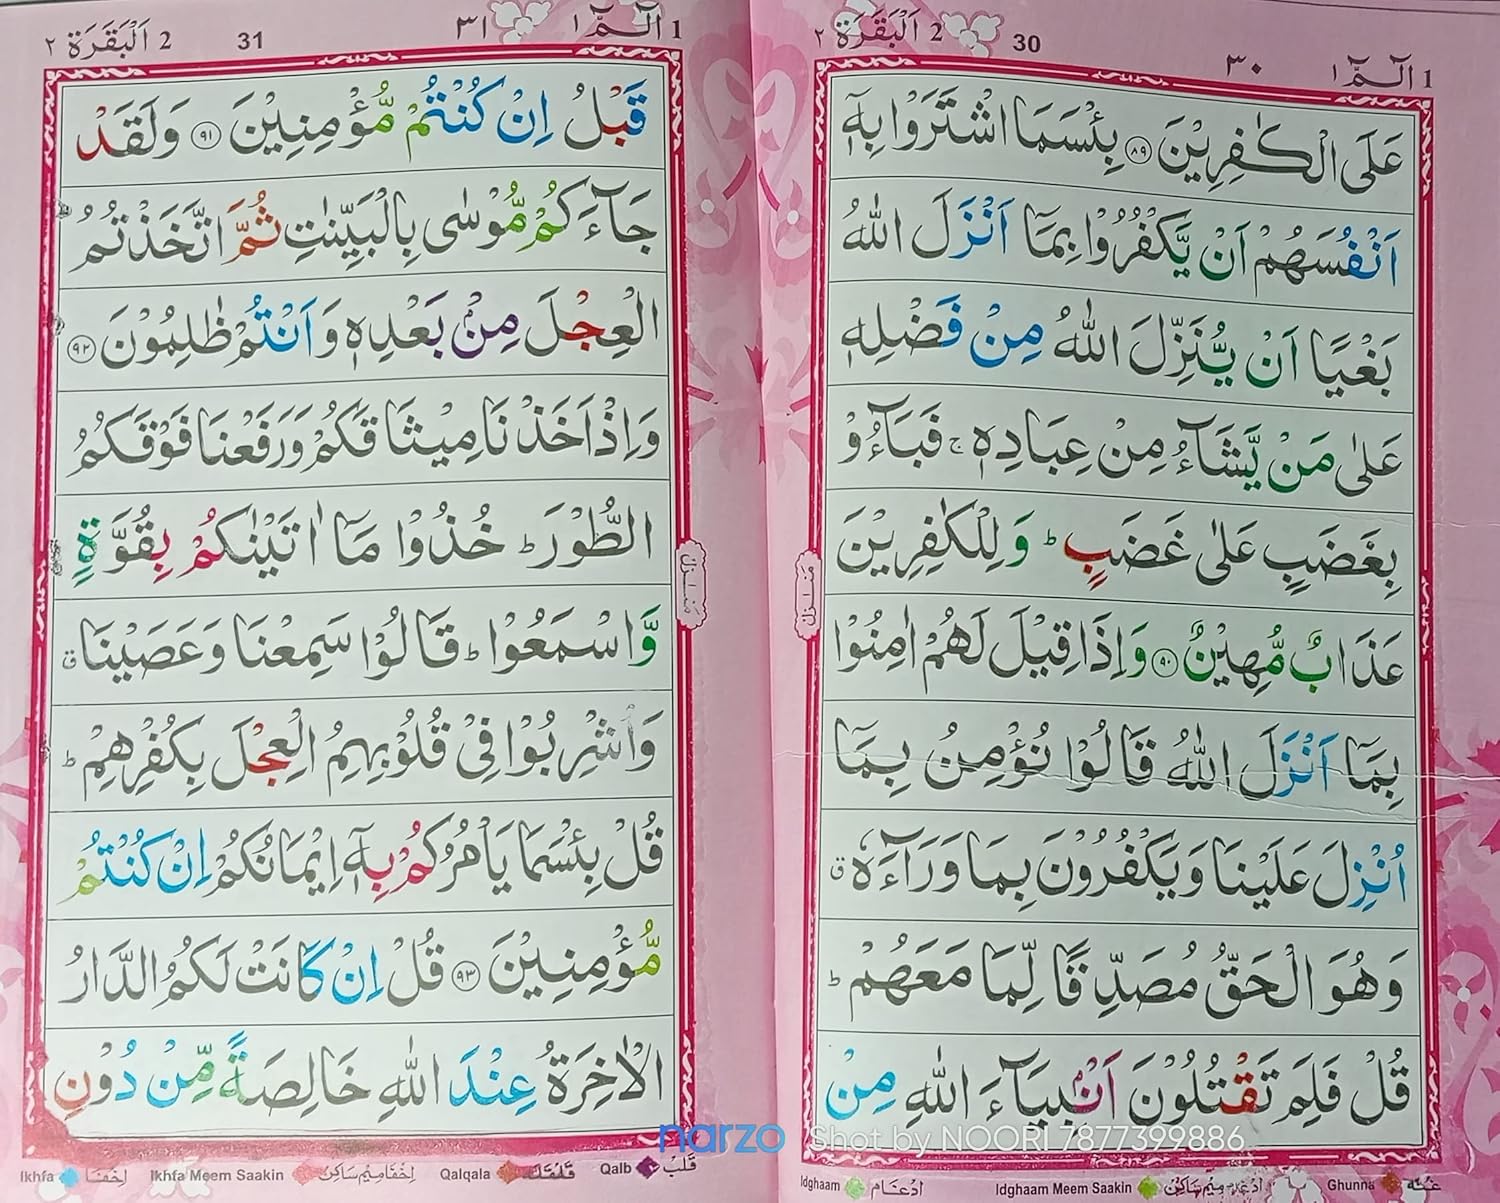 1 الٓمّٓ ١
٣٠
30
2 اَلْبَقَرَة ٢
عَلَى الْكٰفِرِيْنَ ﴿٨٩﴾ بِئْسَمَا اشْتَرَوْا بِهٖۤ
اَنْفُسَهُمْ اَنْ يَّكْفُرُوْا بِمَاۤ اَنْزَلَ اللّٰهُ
بَغْيًا اَنْ يُّنَزِّلَ اللّٰهُ مِنْ فَضْلِهٖ
عَلٰى مَنْ يَّشَآءُ مِنْ عِبَادِهٖ ۚ فَبَآءُوْ
بِغَضَبٍ عَلٰى غَضَبٍ ؕ وَلِلْكٰفِرِيْنَ
عَذَابٌ مُّهِيْنٌ ﴿٩٠﴾ وَاِذَا قِيْلَ لَهُمْ اٰمِنُوْا
بِمَاۤ اَنْزَلَ اللّٰهُ قَالُوْا نُؤْمِنُ بِمَاۤ
اُنْزِلَ عَلَيْنَا وَيَكْفُرُوْنَ بِمَا وَرَآءَهٗ ۗ
وَهُوَ الْحَقُّ مُصَدِّقًا لِّمَا مَعَهُمْ ؕ
قُلْ فَلِمَ تَقْتُلُوْنَ اَنْۢبِيَآءَ اللّٰهِ مِنْ
مَنۡزِل
Idghaam اِدْغَام Idghaam Meem Saakin اِدْغَام مِيْم سَاكِنْ Ghunna غُنَّه
1 الٓمّٓ ١
٣١
31
2 اَلْبَقَرَة ٢
قَبْلُ اِنْ كُنْتُمْ مُّؤْمِنِيْنَ ﴿٩١﴾ وَلَقَدْ
جَآءَكُمْ مُّوْسٰى بِالْبَيِّنٰتِ ثُمَّ اتَّخَذْتُمُ
الْعِجْلَ مِنْۢ بَعْدِهٖ وَاَنْتُمْ ظٰلِمُوْنَ ﴿٩٢﴾
وَاِذْ اَخَذْنَا مِيْثَاقَكُمْ وَرَفَعْنَا فَوْقَكُمُ
الطُّوْرَ ؕ خُذُوْا مَاۤ اٰتَيْنٰكُمْ بِقُوَّةٍ
وَّاسْمَعُوْا ؕ قَالُوْا سَمِعْنَا وَعَصَيْنَا ۗ
وَاُشْرِبُوْا فِيْ قُلُوْبِهِمُ الْعِجْلَ بِكُفْرِهِمْ ؕ
قُلْ بِئْسَمَا يَاْمُرُكُمْ بِهٖۤ اِيْمَانُكُمْ اِنْ كُنْتُمْ
مُّؤْمِنِيْنَ ﴿٩٣﴾ قُلْ اِنْ كَانَتْ لَكُمُ الدَّارُ
الْاٰخِرَةُ عِنْدَ اللّٰهِ خَالِصَةً مِّنْ دُوْنِ
مَنۡزِل
Ikhfa اِخْفَا Ikhfa Meem Saakin اِخْفَا مِيْم سَاكِنْ Qalqala قَلْقَلَه Qalb قَلْب
narzo Shot by NOORI 7877399886